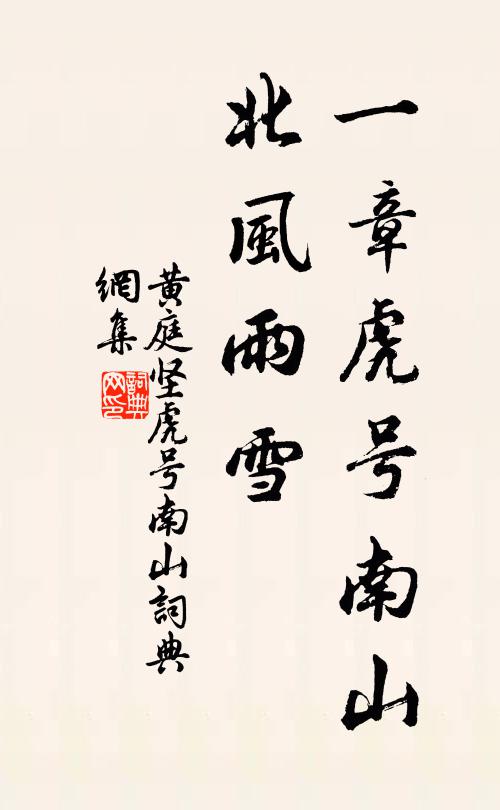 一章虎号南山
北風雨雪
黄庭坚虎号南山詞典
網集
詞典
网印